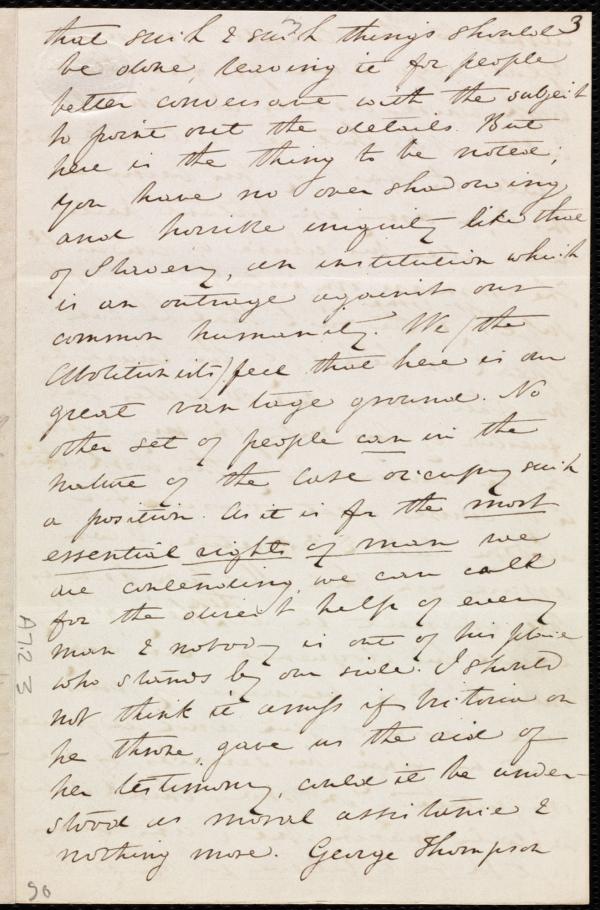 3
that such & such things should
be done, leaving it for people
better conversant with the subject
to point out the details. But
here is the thing to be noted;
you have no overshadowing
and horrible iniquity like that
of Slavery, an institution which
is an outrage against our
common humanity. We (the
Abolitionists) feel that here is our
great vantage ground. No
other set of people can in the
nature of the case occupy such
a position. As it is for the most
essential rights of man we
are contending, we can call
for the direct help of every
man & nobody is out of his place
who stands by our side. I should
not think it amiss if Victoria on
her throne, gave us the aid of
her testimony, could it be under-
stood as moral assistance &
nothing more. George Thompson
A 7.2 3
96